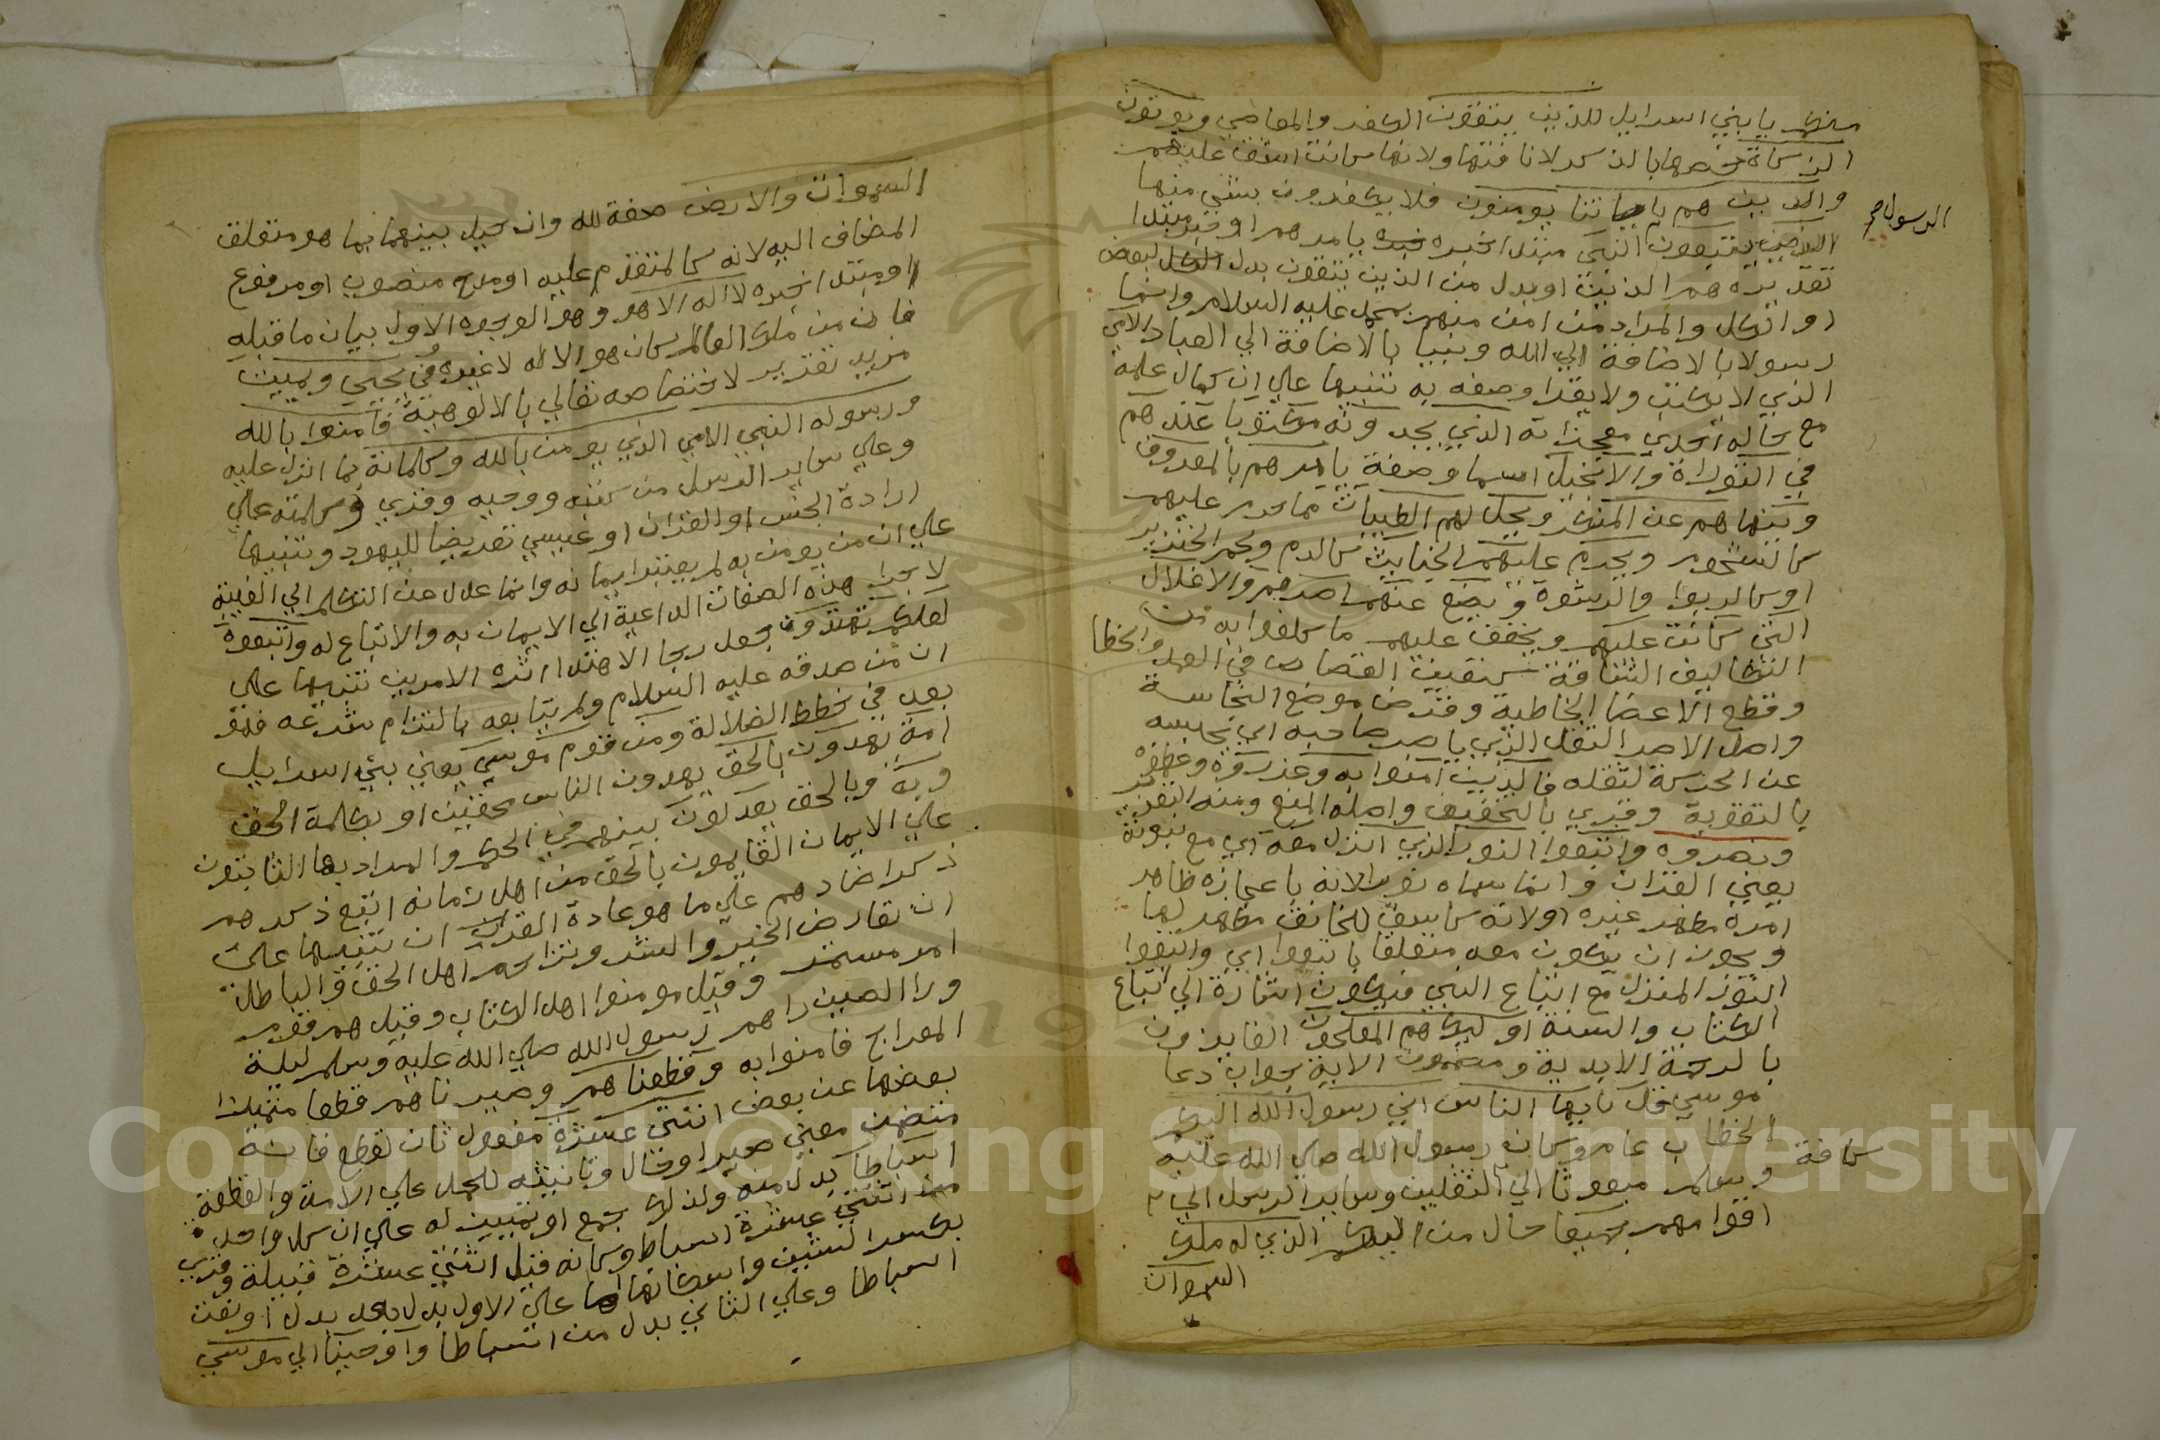 منكم يا بني اسرايل للذين يتقون الكفر والمعاصي ويوتون
الزكاة خصها بالذكر لانافتها ولانها كانت اشق عليهم
والذين هم باياتنا يومنون فلا يكفرون بشي منها
الذين يتبعون النبي مبتدا خبره يامرهم او خبر مبتدا
الرسول صح
تقديره هم الذين او بدل من الذين يتقون بدل البعض
او الكل والمراد من امن منهم بمحمد عليه السلام وانما
رسولا بالاضافة الي الله ونبيا بالاضافة الي العباد الامي
الذي لا يكتب ولا يقرا وصفه به تنبيها علي ان كمال علمه
مع حاله احدي معجزاته الذي يجدونه مكتوبا عندهم
في التوراة والانجيل اسما وصفة يامرهم بالمعروف
وينهاهم عن المنكر ويحل لهم الطيبات مما حرم عليهم
كالشحوم ويحرم عليهم الخبايث كالدم ولحم الخنزير
او كالربوا والرشوة ويضع عنهم اصرهم والاغلال
التي كانت عليهم ويخفف عليهم ما كلفوا به من
التكاليف الشاقة كتعيين القصاص في العمد والخطا
وقطع الاعضا الخاطية وقرض موضع النجاسة
واصل الاصر الثقل الذي ياصر صاحبه اي يحبسه
عن الحركة لثقله فالذين آمنوا به وعزروه وعظموه
بالتقوية وقري بالتخفيف واصله المنع ومنه التعزير
ونصروه واتبعوا النور الذي انزل معه اي مع نبوته
يعني القران وانما سماه نورا لانه باعجازه ظاهر
امره مظهر غيره اولانه كاشف للحقايق مظهر لها
ويجوز ان يكون معه متعلقا باتبعوا اي واتبعوا
النور المنزل مع اتباع النبي فيكون اشارة الي اتباع
الكتاب والسنة اوليك هم المفلحون الفايزون
بالرحمة الابدية ومضمون الاية جواب دعا
موسي قل يايها الناس اني رسول الله اليكم
الخطاب عام وكان رسول الله صلي الله عليه
وسلم مبعوثا الي الثقلين وساير الرسل الي
كافة
اقوامهم جميعا حال من اليكم الذي له ملك
السموات
السموات والارض صفة لله وان حيل بينهما بما هو متعلق
المضاف اليه لانه كالمتقدم عليه او مدح منصوب او مرفوع
او مبتدا خبره لا اله الا هو وهو الوجوه الاول بيان ما قبله
فان من ملك العالم كان هو الاله لا غيره في يحيي ويميت
مزيد تقرير لاختصاصه تعالي بالالوهية فامنوا بالله
ورسوله النبي الامي الذي يومن بالله وكلماته بما انزل عليه
وعلي ساير الرسل من كتبه ووحيه وقري وكلمته علي
ارادة الجنس او القران او عيسي تعريضا لليهود وتنبيها
علي ان من يومن به لم يعتبر ايمانه وانما عدل عن التكلم الي الغيبة
لاجرا هذه الصفات الداعية الي الايمان به والاتباع له واتبعوه
لعلكم تهتدون جعل رجا الاهتدا اثر الامرين تنبيها علي
ان من صدقه عليه السلام ولم يتابعه بالتزام شرعه فهو
يعد في خطط الضلالة ومن قوم موسي يعني بني اسرايل
امة يهدون بالحق يهدون الناس محقين او بكلمة الحق
وبه وبالحق يعدلون بينهم في الحكم والمراد بها الثابتون
علي الايمان القايمون بالحق من اهل زمانه اتبع ذكرهم
ذكر اضدادهم علي ما هو عادة القران تنبيها علي
ان تعارض الخير والشر وتزاحم اهل الحق والباطل
امر مستمر وقيل مومنوا اهل الكتاب وقيل هم قوم
ورا الصين راهم رسول الله صلي الله عليه وسلم ليلة
المعراج فامنوا به وقطعناهم وصيرناهم قطعا متميزا
بعضها عن بعض اثنتي عشرة مفعول ثان لقطع فانه
متضمن معني صير او حال وتانيثه للحمل علي الامة والقطعة
اسباطا بدل منه ولذلك جمع او تمييز له علي ان كل واحد
من اثنتي عشرة اسباط وكانه قيل اثنتي عشرة قبيلة وقري
بكسر الشين واسكانها امما علي الاول بدل بعد بدل او نعت
اسباطا وعلي الثاني بدل من اسباطا واوحينا الي موسي
Copyright © King Saud University